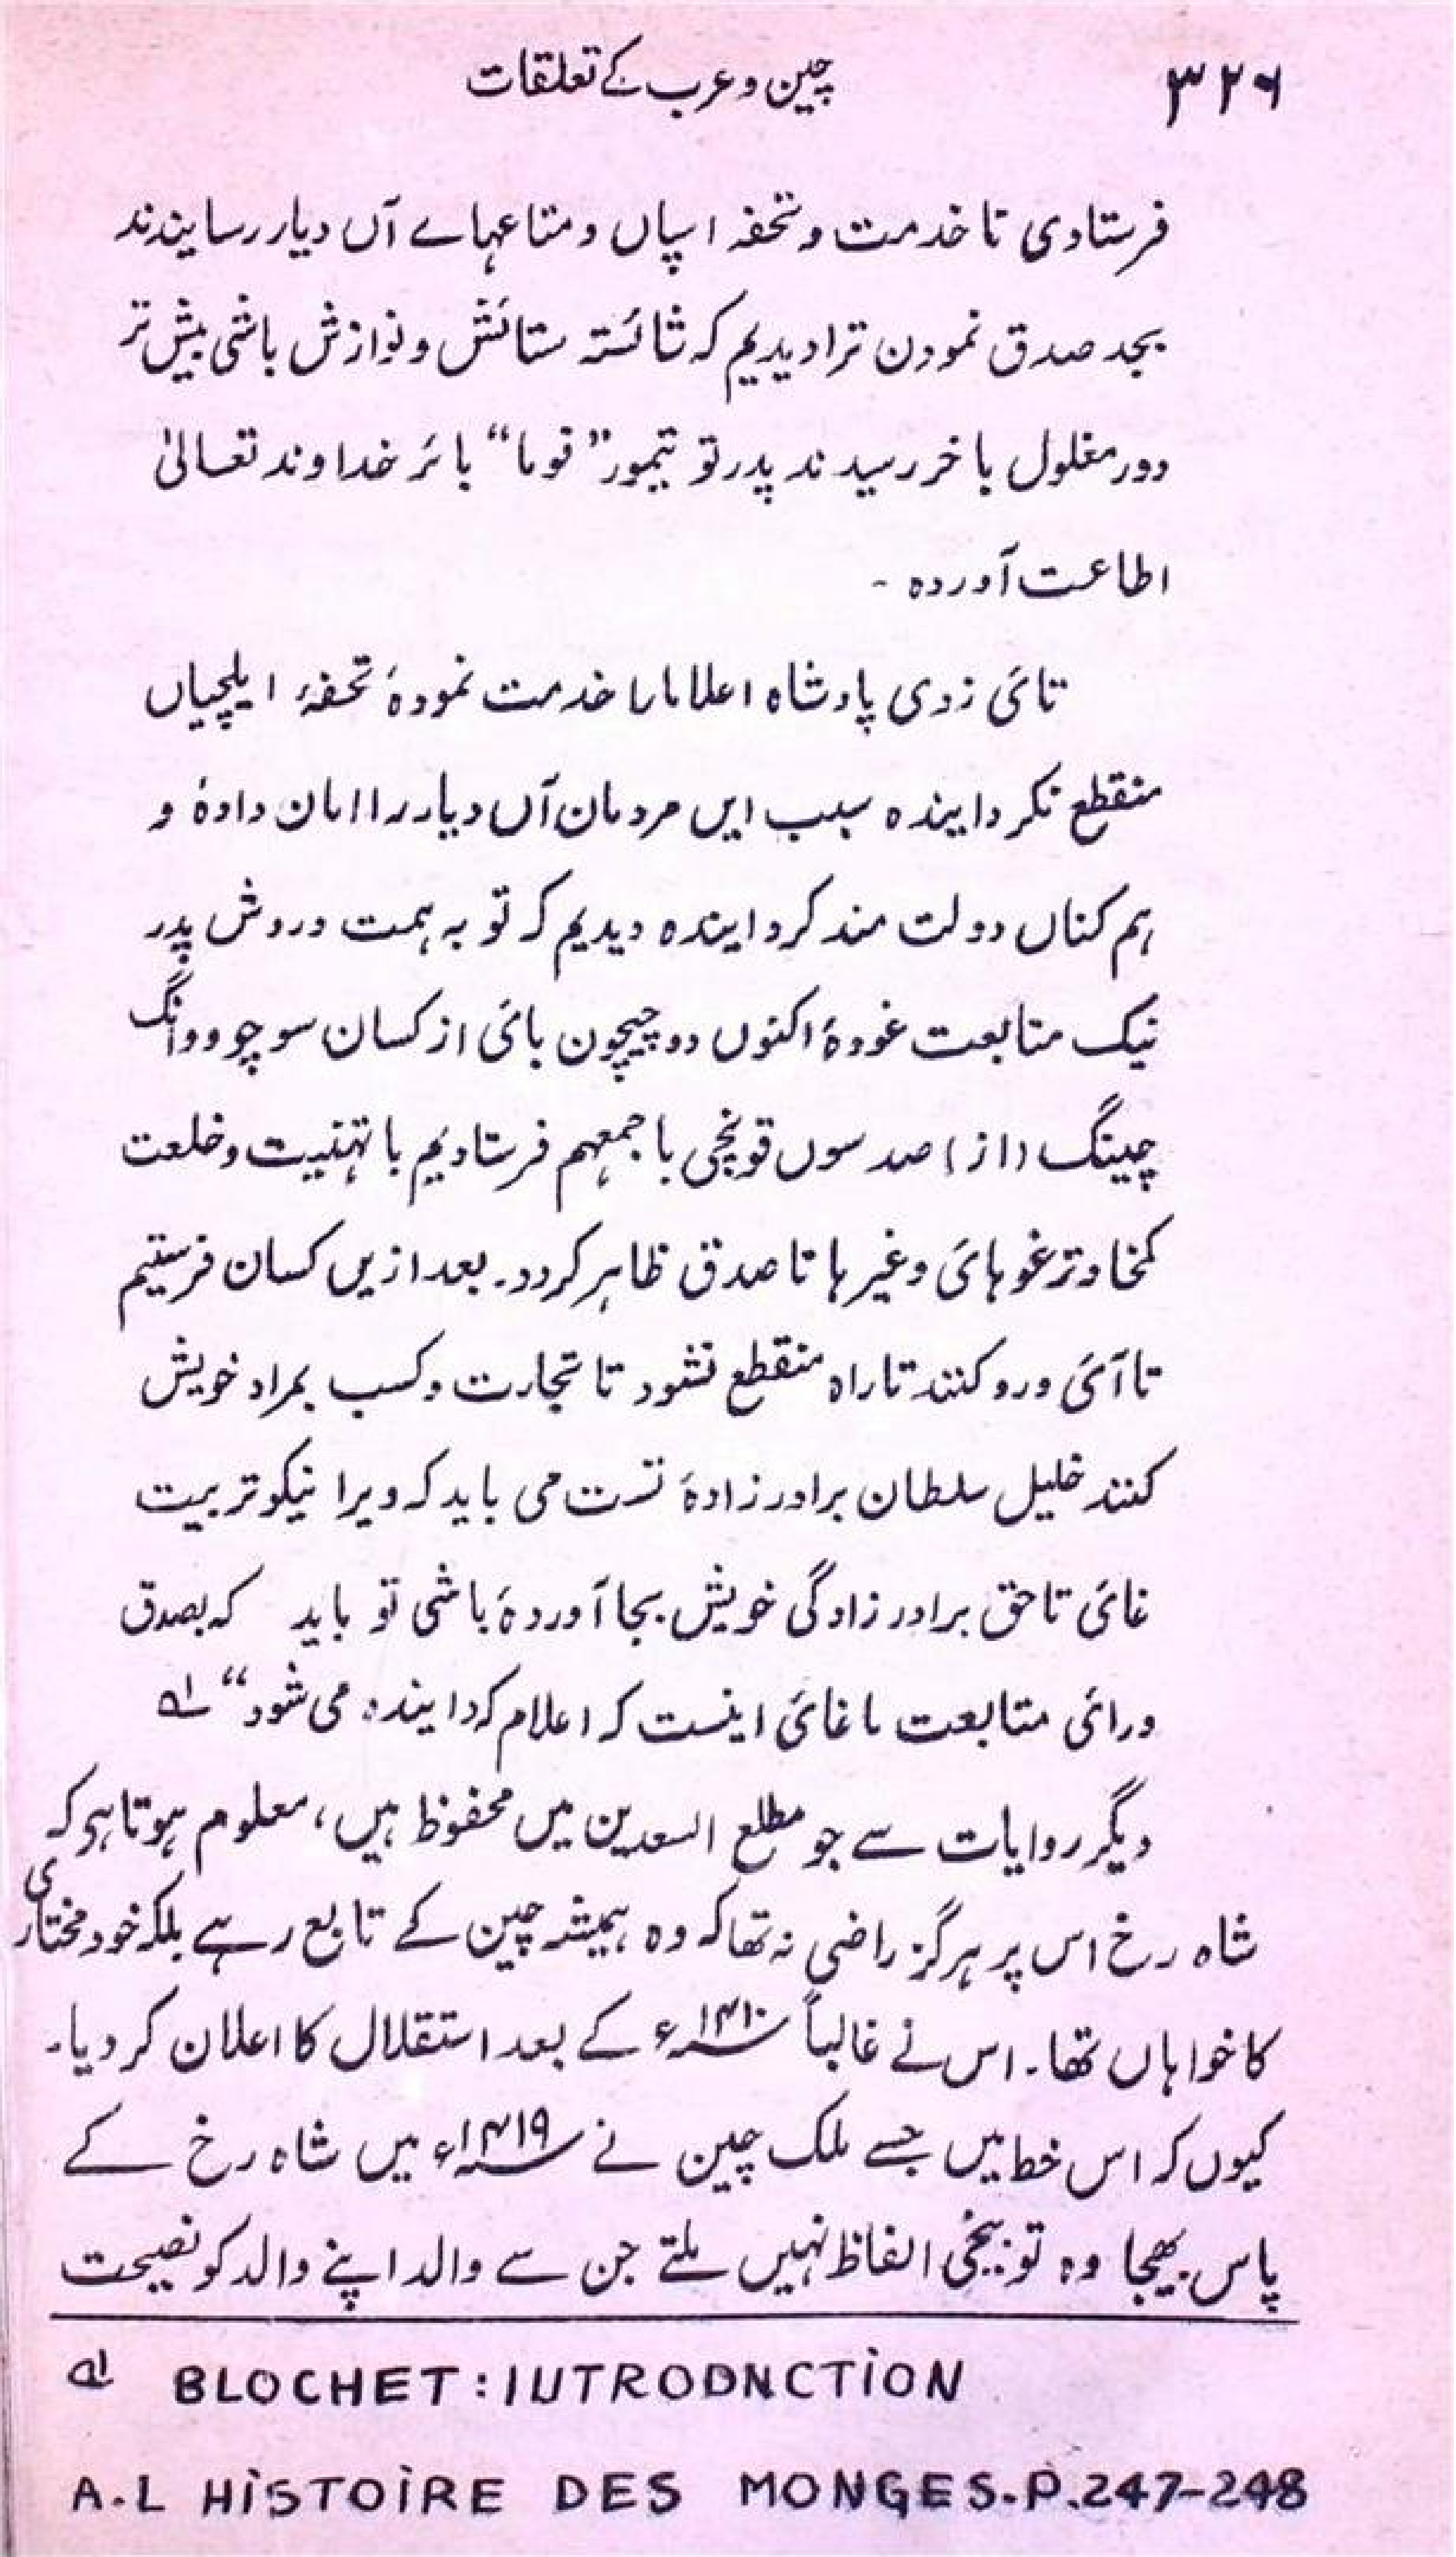 ۳۲۶
چین و عرب کے تعلقات
فرستادی تا خدمت و تحفہ اسپاں و متاعہاے آں دیار رسایندند
بجد صدق نمودن ترا دیدیم کہ شائستہ ستائش و نوازش باشی بیش تر
دور مغلول باخر رسیدند پدر تو تیمور "فوما" بائر خداوند تعالیٰ
اطاعت آوردہ ۔
تائی زدی پادشاہ اعلا مارا خدمت نمودۂ تحفۂ ایلچیاں
منقطع نکرداینده سبب ایں مردمان آں دیار را امان دادۂ و
ہم کناں دولت مند کرداینده دیدیم کہ تو بہ ہمت و روش پدر
نیک متابعت غودۂ اکنوں دوچیچون بائی از کسان سوچو ووانگ
چینگ (از) صد سوں قونچی باجمعہم فرستادیم با تہنیت و خلعت
کمخا و ترغوہائ وغیرہا تا صدق ظاہر کردد۔ بعد ازیں کسان فرستیم
تا آئ و رو کنند تا راہ منقطع نشود تا تجارت و کسب بمراد خویش
کنند خلیل سلطان برادر زادۂ تست می باید کہ ویرا نیکو تربیت
غائ تا حق برادر زادگی خویش بجا آوردۂ باشی تو باید کہ بصدق
ورائی متابعت ما غائ اینست کہ اعلام کداینده می شود" ؎۱
دیگر روایات سے جو مطلع السعدین میں محفوظ ہیں، معلوم ہوتا ہی کہ
شاہ رخ اس پر ہرگز راضی نہ تھا کہ وہ ہمیشہ چین کے تابع رہے بلکہ خود مختاری
کا خواہاں تھا۔ اس نے غالباً ۱۴۱۰ء کے بعد استقلال کا اعلان کر دیا۔
کیوں کہ اس خط میں جسے ملک چین نے ۱۴۱۹ء میں شاہ رخ کے
پاس بھیجا وہ توبیخی الفاظ نہیں ملتے جن سے والد اپنے والد کو نصیحت
؎۱ BLOCHET : IUTRODNCTiON
A.L HiSTOiRE DES MONGES.P.247-248